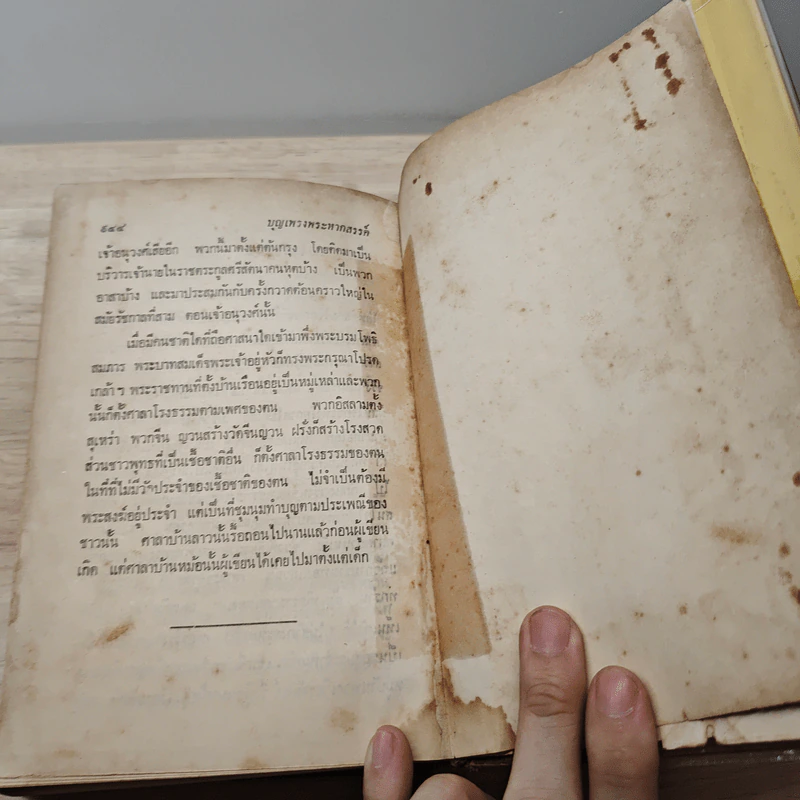 ๕๔๔ บุญเพรงพระหากสรรค์
เจ้าอนุวงศ์เสียอีก พวกนี้มาตั้งแต่ต้นกรุง โดยติดมาเป็น
บริวารเจ้านายในราชตระกูลศรีสัตนาคนหุตบ้าง เป็นพวก
อาสาบ้าง และมาประสมกันกับครั้งกวาดต้อนคราวใหญ่ใน
สมัยรัชกาลที่สาม ตอนเจ้าอนุวงศ์นั้น
เมื่อมีคนชาติใดที่ถือศาสนาใดเข้ามาพึ่งพระบรมโพธิ
สมภาร พระบาทสมเด็จพระเจ้าอยู่หัวก็ทรงพระกรุณาโปรด
เกล้า ฯ พระราชทานที่ตั้งบ้านเรือนอยู่เป็นหมู่เหล่าและพวก
นั้นก็ตั้งศาลาโรงธรรมตามเพศของตน พวกอิสลามตั้ง
สุเหร่า พวกจีน ญวนสร้างวัดจีนญวน ฝรั่งก็สร้างโรงสวด
ส่วนชาวพุทธที่เป็นเชื้อชาติอื่น ก็ตั้งศาลาโรงธรรมของตน
ในที่ที่ไม่มีวัดประจำของเชื้อชาติของตน ไม่จำเป็นต้องมี
พระสงฆ์อยู่ประจำ แต่เป็นที่ชุมนุมทำบุญตามประเพณีของ
ชาวนั้น ศาลาบ้านลาวนั้นรื้อถอนไปนานแล้วก่อนผู้เขียน
เกิด แต่ศาลาบ้านหม้อนั้นผู้เขียนได้เคยไปมาตั้งแต่เด็ก